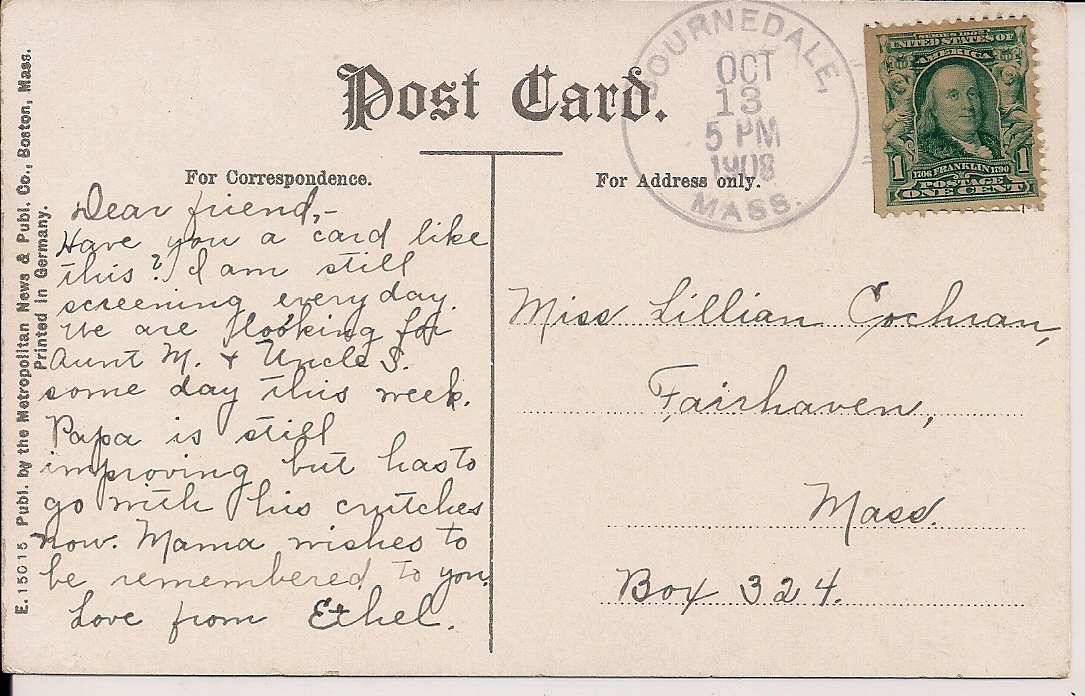 Post Card.
For Correspondence.
Dear friend,-
Have you a card like
this? I am still
screening every day.
We are looking for
Aunt M. + Uncle S.
some day this week.
Papa is still
improving but has to
go with his crutches
now. Mama wishes to
be remembered to you.
Love from Ethel.
For Address only.
Miss Lillian Cochran,
Fairhaven,
Mass.
Box 324.
BOURNEDALE,
OCT
13
5 PM
1908
MASS.
SERIES 1902
UNITED STATES OF
AMERICA
1 1706 FRANKLIN 1790 1
POSTAGE
ONE CENT
E. 15015 Publ. by the Metropolitan News & Publ. Co., Boston, Mass.
Printed in Germany.